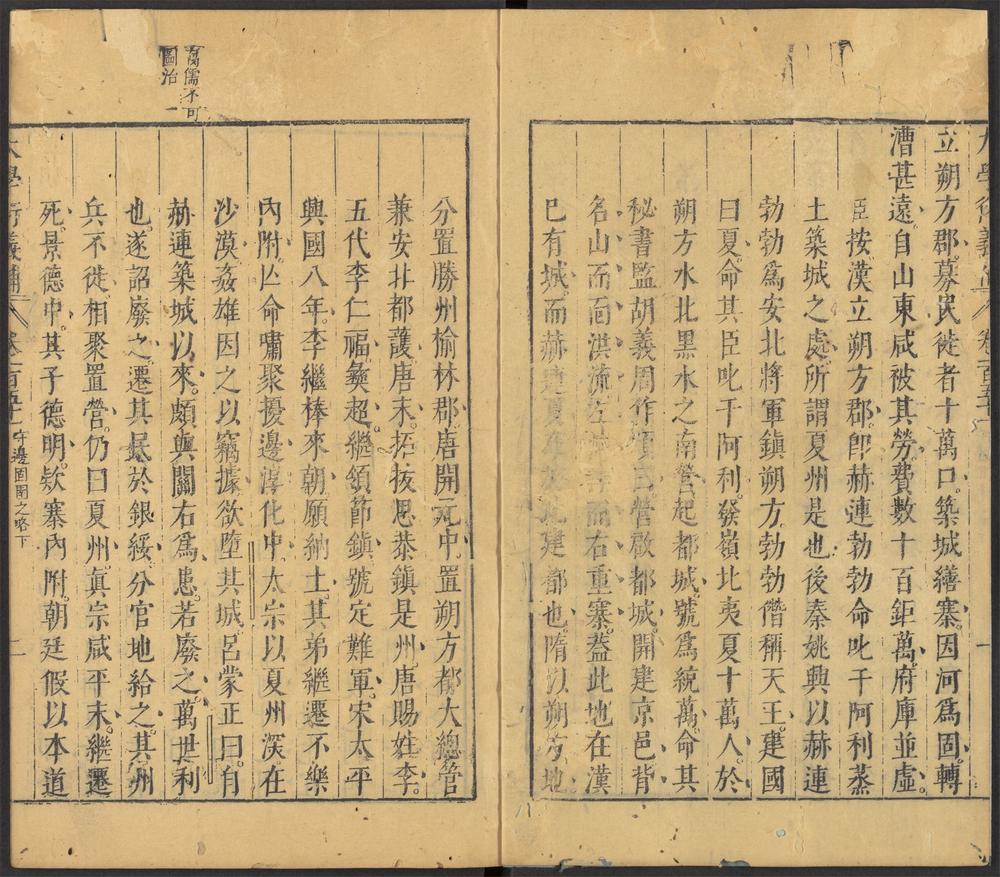 大學衍義補卷一百五十 一
立朔方郡。募民徙者十萬口。築城繕寨。因河爲固。轉
漕甚遠。自山東咸被其勞。費數十百鉅萬。府庫並虛。
臣按漢立朔方郡。卽赫連勃勃命叱干阿利蒸
土築城之處。所謂夏州是也後秦姚興以赫連
勃勃爲安北將軍鎮朔方。勃勃僭稱天王。建國
曰夏。命其臣叱干阿利。發嶺北夷夏十萬人。於
朔方水北黑水之南。營起都城。號爲統萬。命其
秘書監胡義周作頌曰。營啟都城。開建京邑。背
名山而面洪流。左河津而右重塞。葢此地在漢
已有城。而赫連夏建都也。隋以朔方地
分置勝州榆林郡。唐開元中。置朔方都大總管
兼安北都護。唐末。拓拔思恭鎮是州。唐賜姓李。
五代李仁福。彝超。繼領節鎮。號定難軍。宋太平
興國八年。李繼棒來朝願納土。其弟繼遷不樂
內附。亡命嘯聚擾邊。淳化中。太宗以夏州深在
沙漠。姦雄因之以竊據。欲墮其城。呂蒙正曰。自
赫連築城以來。頗與關右爲患。若廢之。萬世利
也。遂詔廢之。遷其民於銀綏。分官地給之。其州
兵不徙。相聚置營。仍曰夏州。眞宗咸平末。繼遷
死。景德中。其子德明。欵寨內附。朝廷假以本道
大學衍義補卷一百五十 守邊固圉之略下 二
腐儒不可
圖治